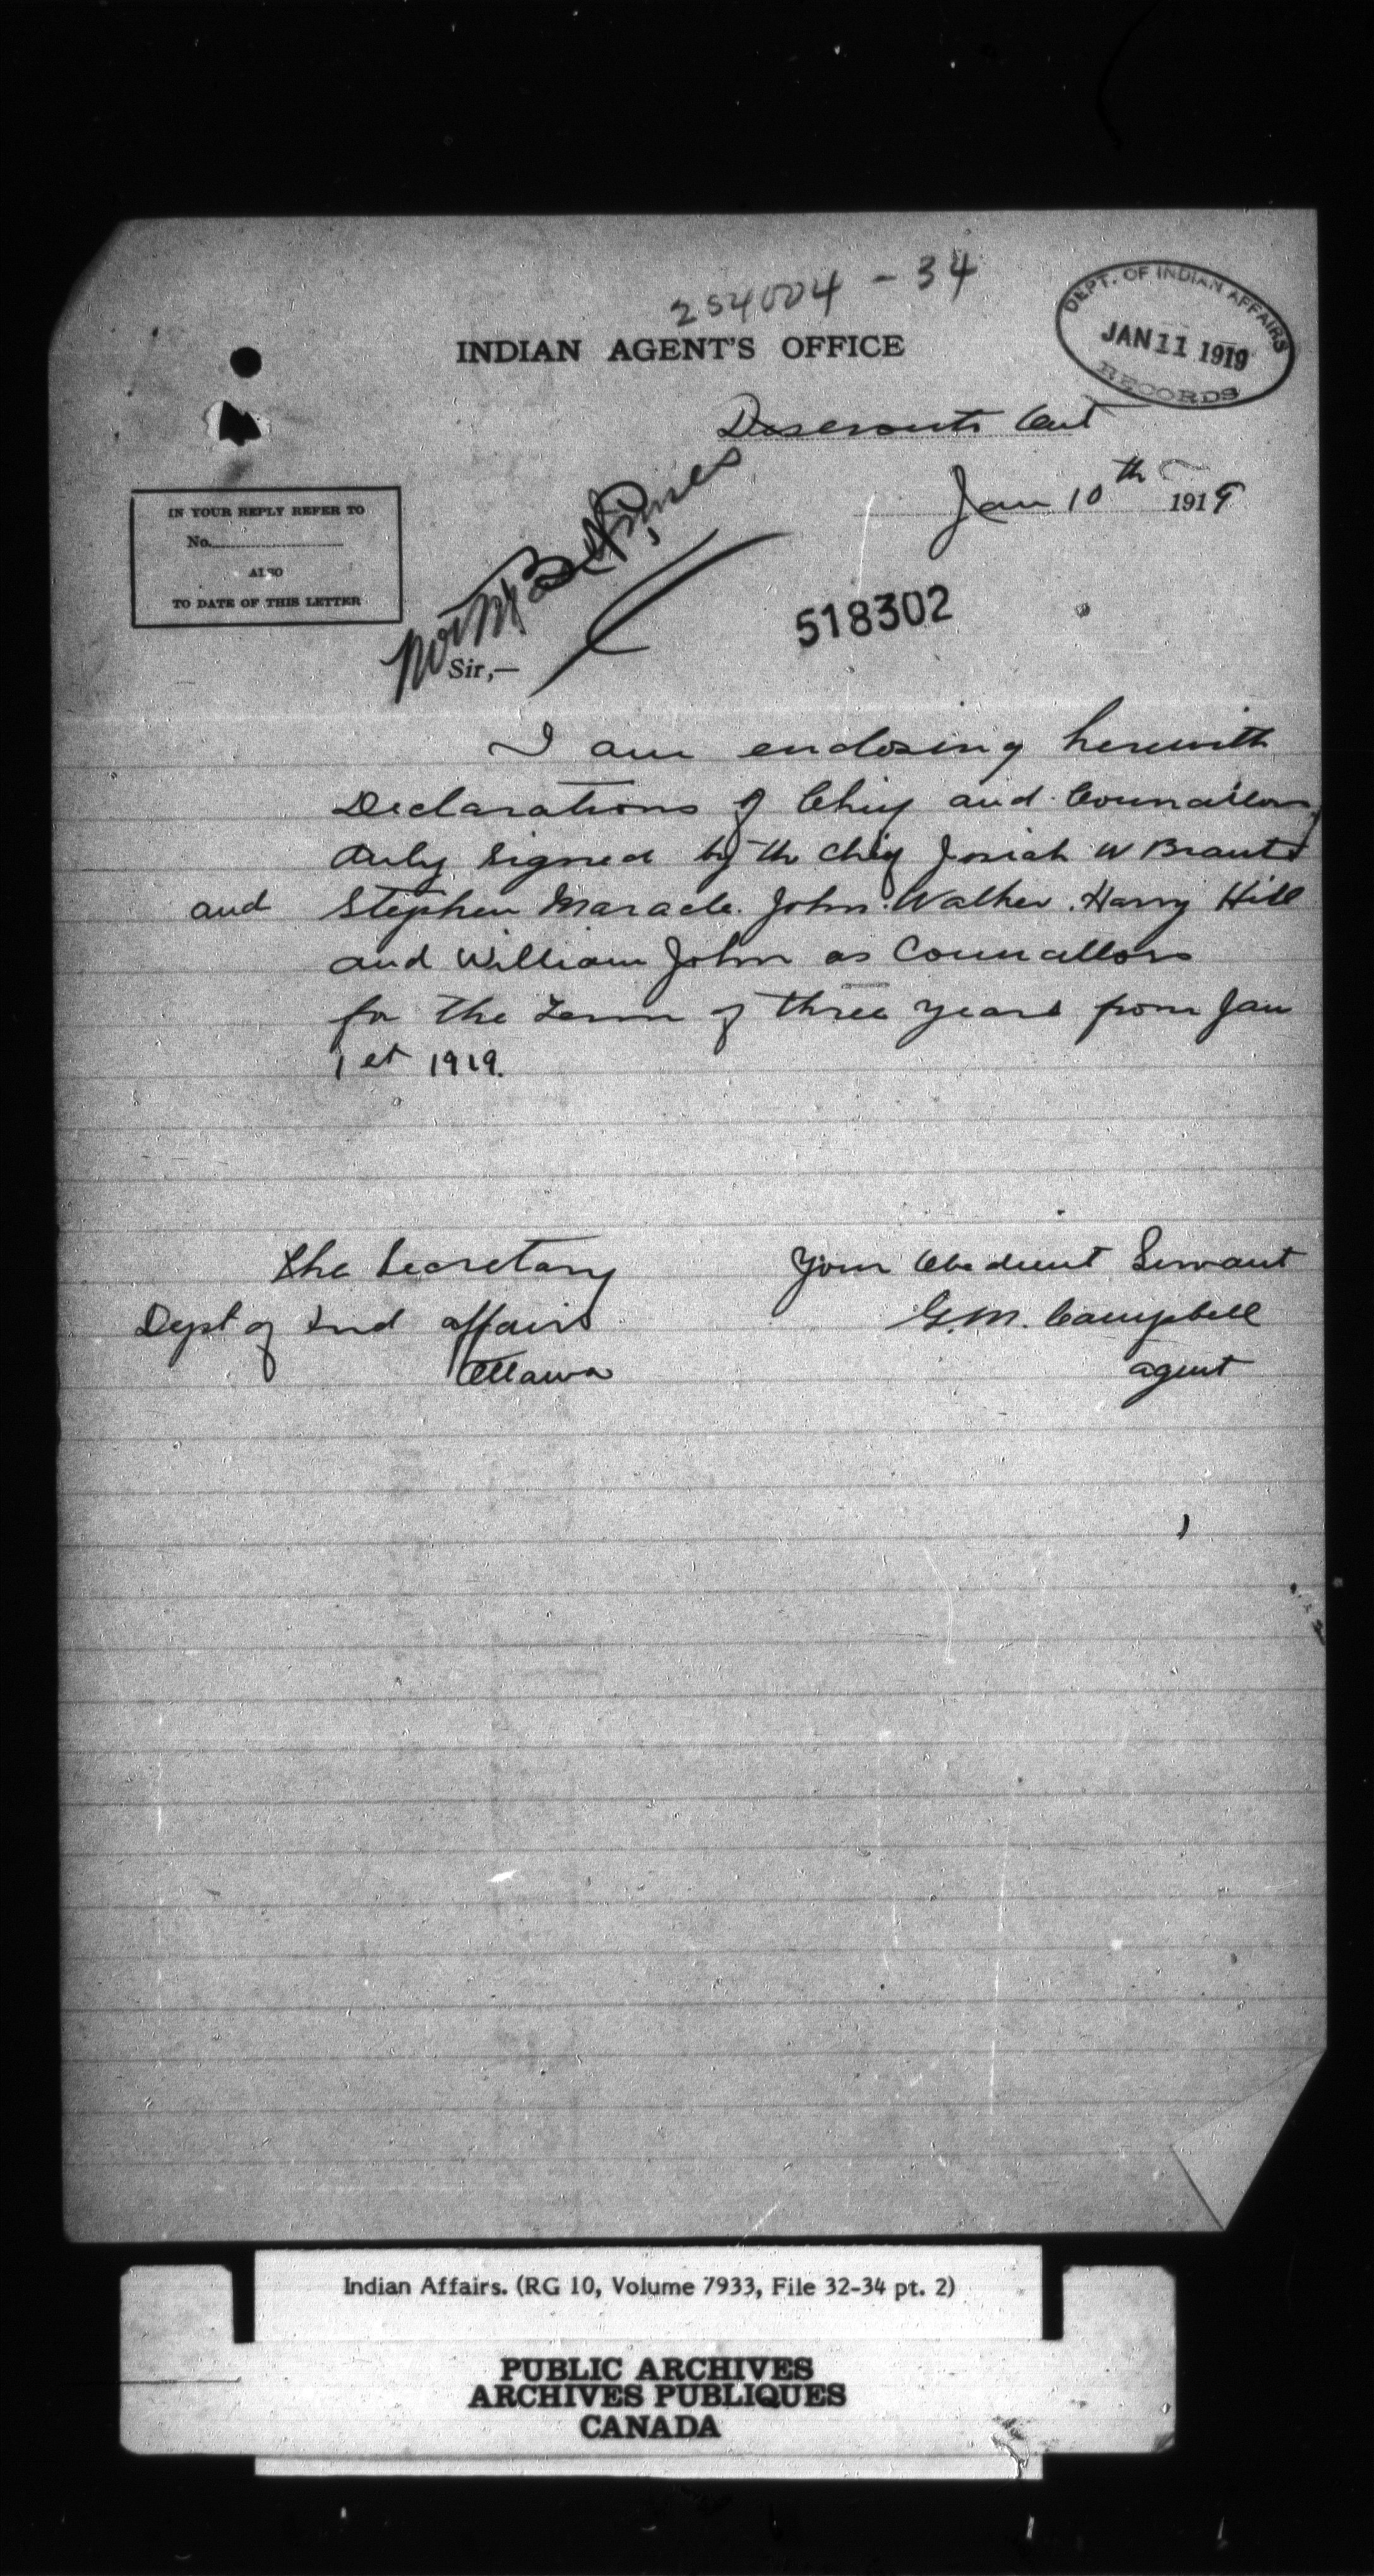 254004 - 34
DEPT. OF INDIAN AFFAIRS
JAN 11 1919
RECORDS
INDIAN AGENT'S OFFICE
Deseronto Ont
Jan 10th 1919
IN YOUR REPLY REFER TO
No.
ALSO
TO DATE OF THIS LETTER
518302
Sir,—
I am enclosing herewith
Declarations of Chief and Councillors
duly signed by the Chief Josiah W Brant
and Stephen Maracle. John Walker. Harry Hill
and William John as Councillors
for the Term of three years from Jan
1st 1919.
The Secretary
Dept of Ind affairs
Ottawa
Your Obedient Servant
G.M. Campbell
agent
Indian Affairs. (RG 10, Volume 7933, File 32-34 pt. 2)
PUBLIC ARCHIVES
ARCHIVES PUBLIQUES
CANADA